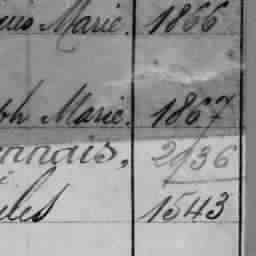 Marie. 1866
Marie. 1867
nnais, 2936
les 1543